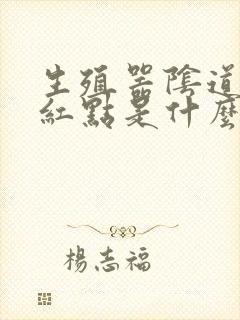 生殖器陰道
紅點是什麼
楊志福